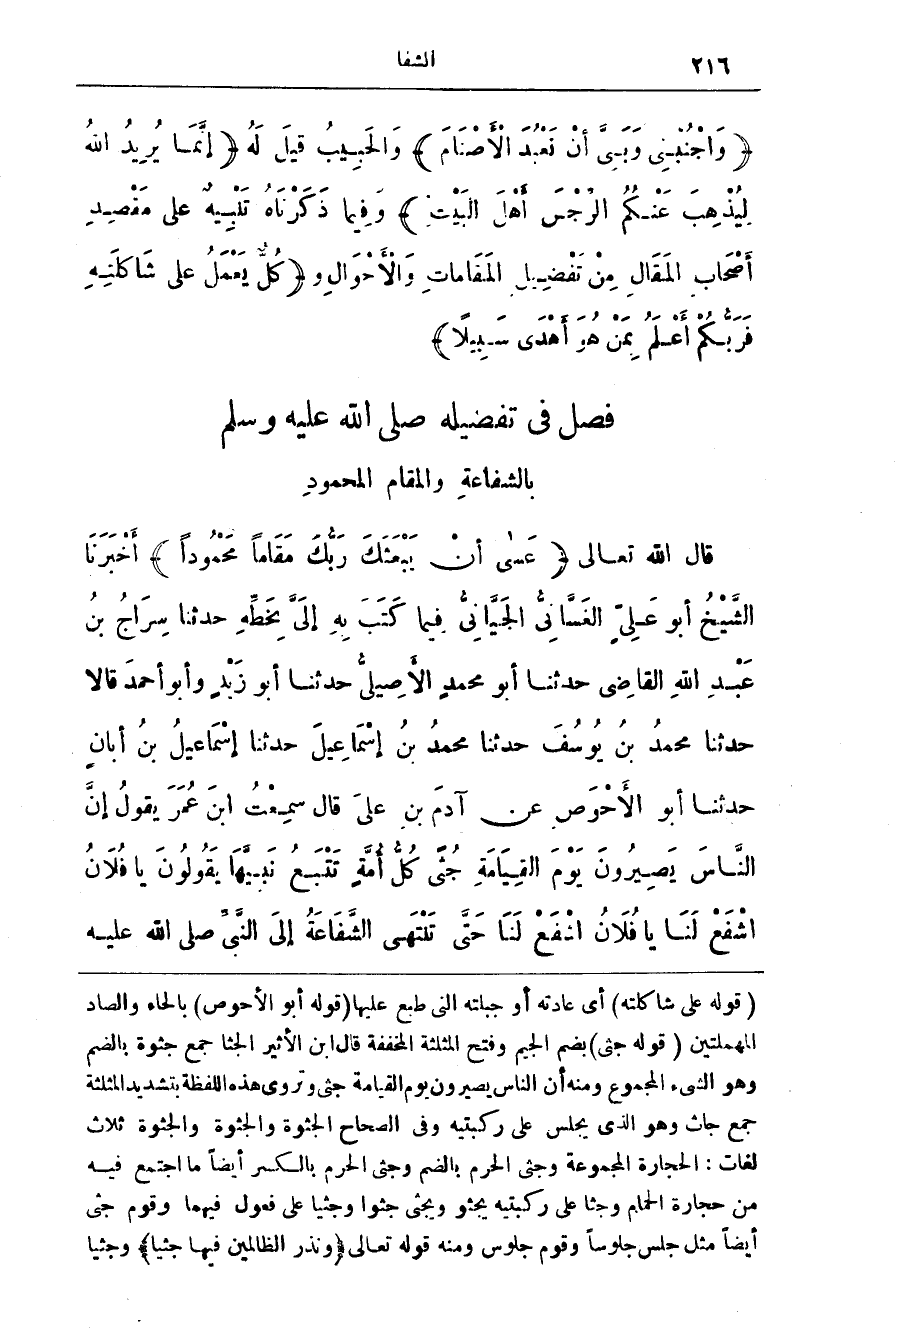 ٢١٦
الشفا
﴿ وَاجْنُبْنِى وَبَنِىَّ أَنْ نَعْبُدَ الْأَصْنَامَ ﴾ وَالحَبِيبُ قيلَ لَهُ ﴿ إنَّمَا يُرِيدُ اللهُ
لِيُذْهِبَ عَنْكُمُ الرِّجْسَ أَهْلَ الْبَيْتِ ﴾ وَفِيما ذَكَرْنَاهُ تَنْبِيهٌ على مَقْصِدِ
أَصْحَابِ المَقَالِ مِنْ تَفْضِيلِ المَقَامَاتِ وَالْأَحْوَالِ و ﴿ كُلٌّ يَعْمَلُ على شَاكلَتِهِ
فَرَبُّكُمْ أَعْلَمُ بِمَنْ هُوَ أَهْدَى سَبِيلًا ﴾
فصل فى تفضيله صلى الله عليه وسلم
بالشفاعةِ والمقام المحمودِ
قال الله تعالى ﴿ عَسٰى أَنْ يَبْعَثَكَ رَبُّكَ مَقَاماً مَحْمُوداً ﴾ أَخْبَرَنَا
الشَّيْخُ أبو عَلِىٍّ الغَسَّانِىُّ الجَيَّانِىُّ فيما كَتَبَ بِهِ إلَىَّ بِخَطِّهِ حدثنا سِرَاجُ بنُ
عَبْدِ اللهِ القاضِى حدثنا أبو محمدٍ الأَصِيلىُّ حدثنا أبو زَيْدٍ وأبو أحمدَ قالا
حدثنا محمدُ بنُ يُوسُفَ حدثنا محمدُ بنُ إسْمَاعِيلَ حدثنا إسْمَاعيلُ بنُ أبانٍ
حدثنا أبو الأَحْوَصِ عن آدمَ بنِ علىٍ قال سمِعْتُ ابنَ عُمَرَ يقولُ إنَّ
النَّاسَ يَصِيرُونَ يَوْمَ القِيَامَةِ جُثًى كُلُّ أُمَّةٍ تَتْبَعُ نَبِيَّهَا يَقُولُونَ يا فُلَانُ
اشْفَعْ لَنَا يا فُلَانُ اشْفَعْ لَنَا حَتَّى تَنْتَهِىَ الشَّفَاعَةُ إلَى النَّبِىِّ صلى الله عليه
( قوله على شاكلته ) أى عادته أو جبلته التى طبع عليها (قوله أبو الأحوص) بالحاء والصاد
المهملتين ( قوله جثى) بضم الجيم وفتح المثلثة المخففة قال ابن الأثير الجثا جمع جثوة بالضم
وهو الشىء المجموع ومنه أن الناس يصيرون يوم القيامة جثى وتروى هذه اللفظة بتشديد المثلثة
جمع جاث وهو الذى يجلس على ركبتيه وفى الصحاح الجثوة والجثوة والجثوة ثلاث
لغات : الحجارة المجموعة وجثى الحرم بالضم وجثى الحرم بالكسر أيضاً ما اجتمع فيه
من حجارة الجمار وجثا على ركبتيه يجثو ويجثى جثوا وجثيا على فعول فيهما وقوم جثى
أيضاً مثل جلس جلوساً وقوم جلوس ومنه قوله تعالى ﴿ ونذر الظالمين فيها جثيا ﴾ وجثيا